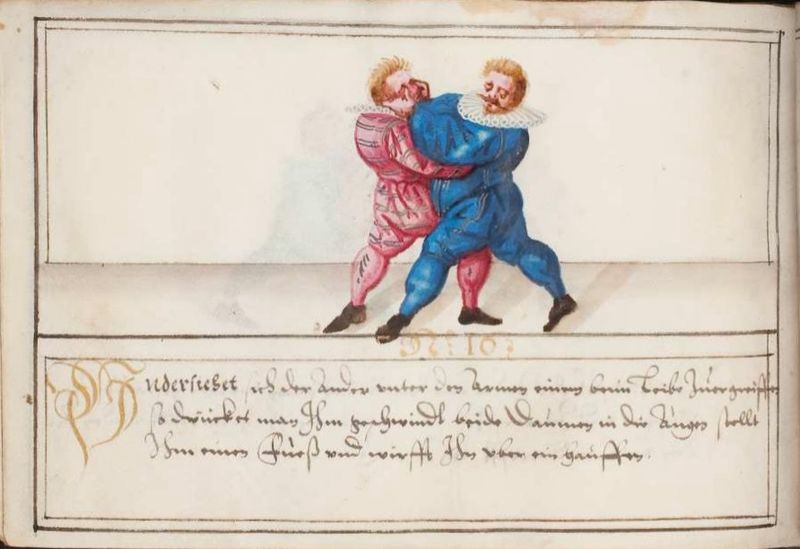 N: 10:
Vndersiehet sich der Ander vnter den Armen einem beim Leibe Zuergreiffen
so drücket man Ihm geschwindt beide Daumen in die Augen stellt
Ihm einen Fueß vnd wirfft Ihn vber ein hauffen.